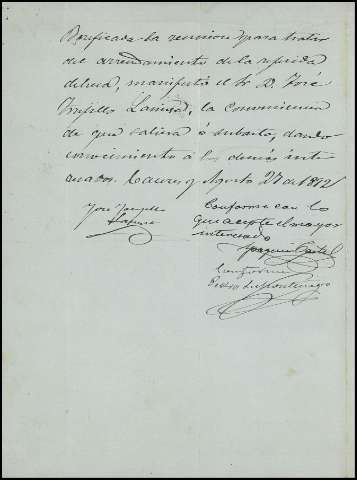 Verificada la reunion para tratar
del arrendamiento de la referida
dehesa, manifestó el Sr. D. José
Trujillo Lanuza, la conveniencia
de que saliera á subasta, dando
conocimiento á los demás inte
resados. Caceres y Agosto 27 de 1872
José Trujillo
Lanuza
Conforme con lo
que acepte el mayor
interesado
Joaquin
Conforme
Pedro